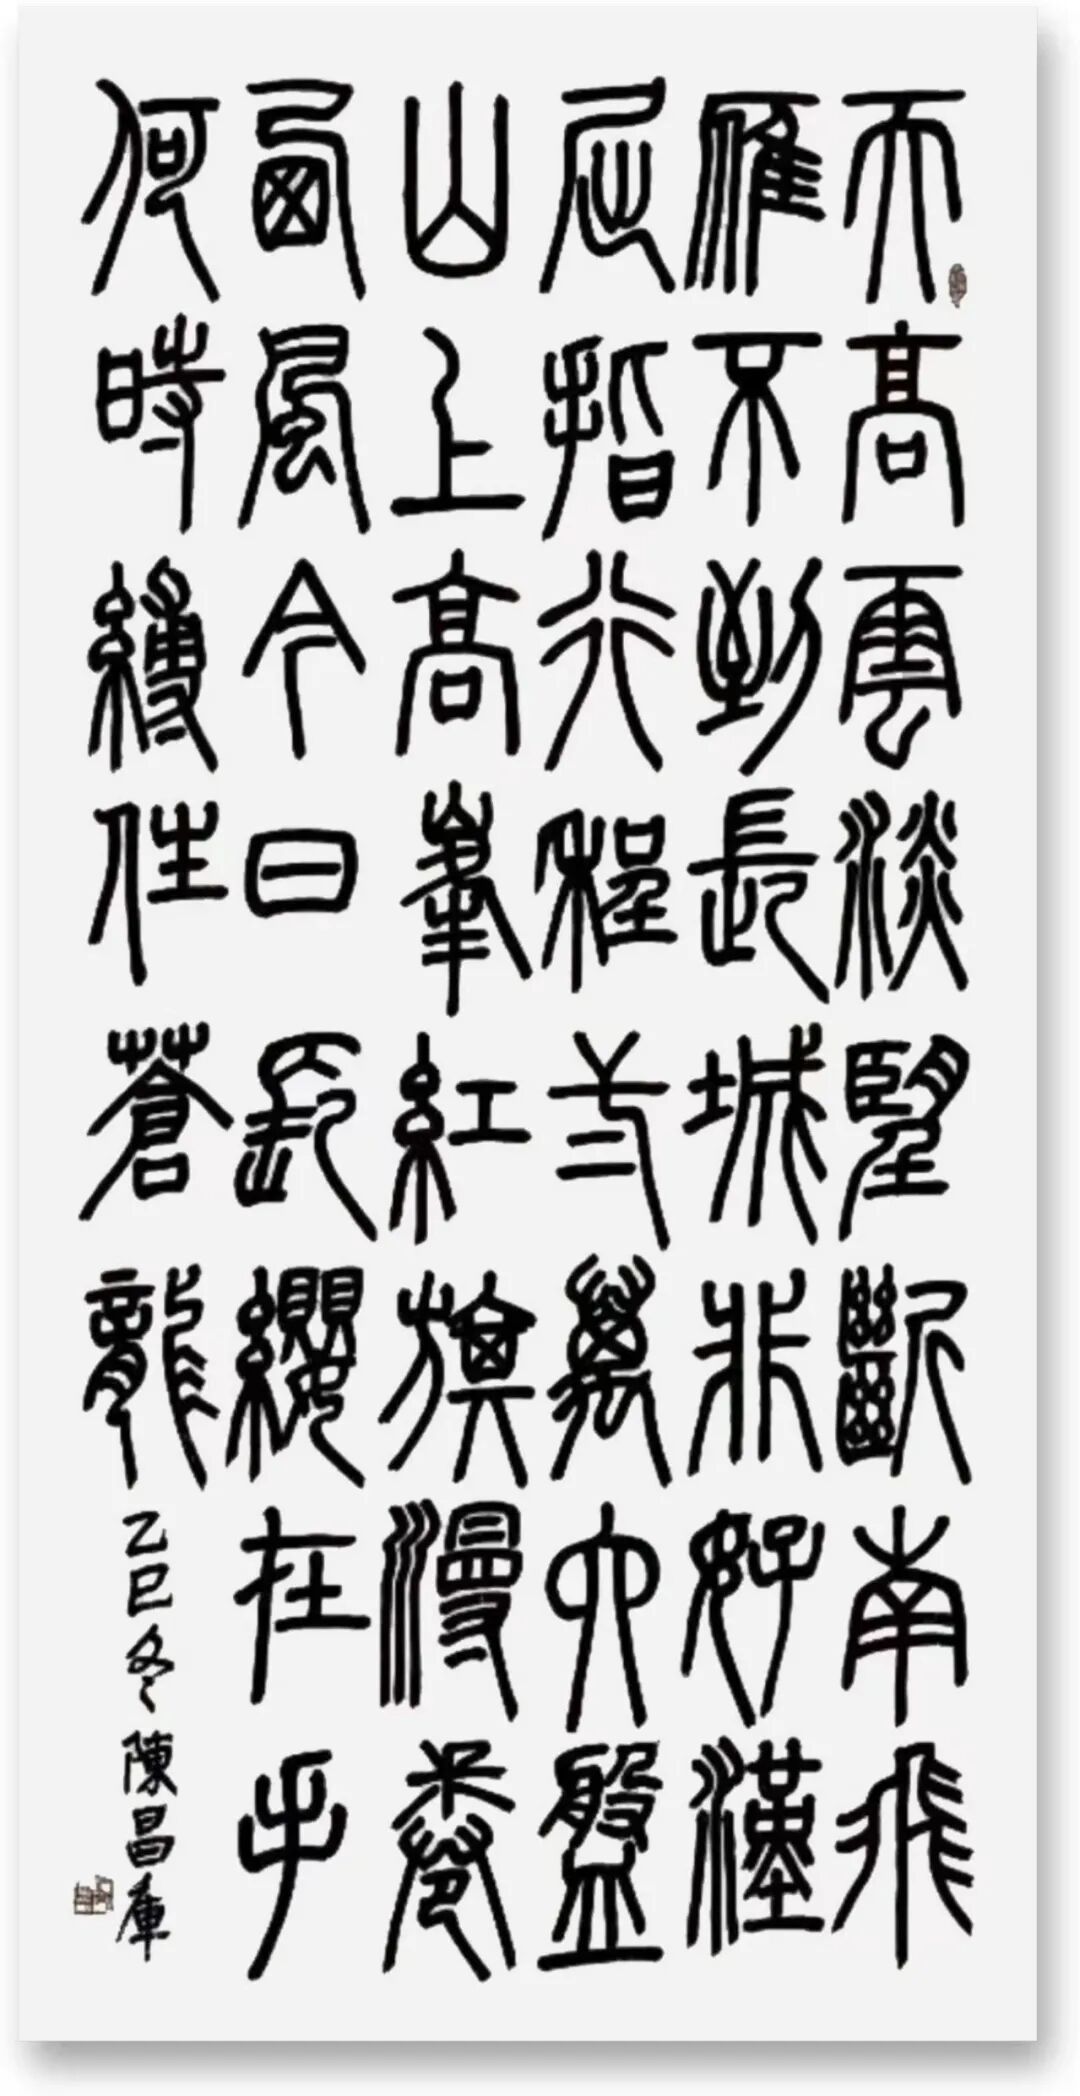 天高雲淡望斷南飛
雁不到長城非好漢
屈指行程二萬六盤
山上高峯紅旗漫卷
西風今日長纓在手
何時縛住蒼龍
乙巳冬陳昌庫